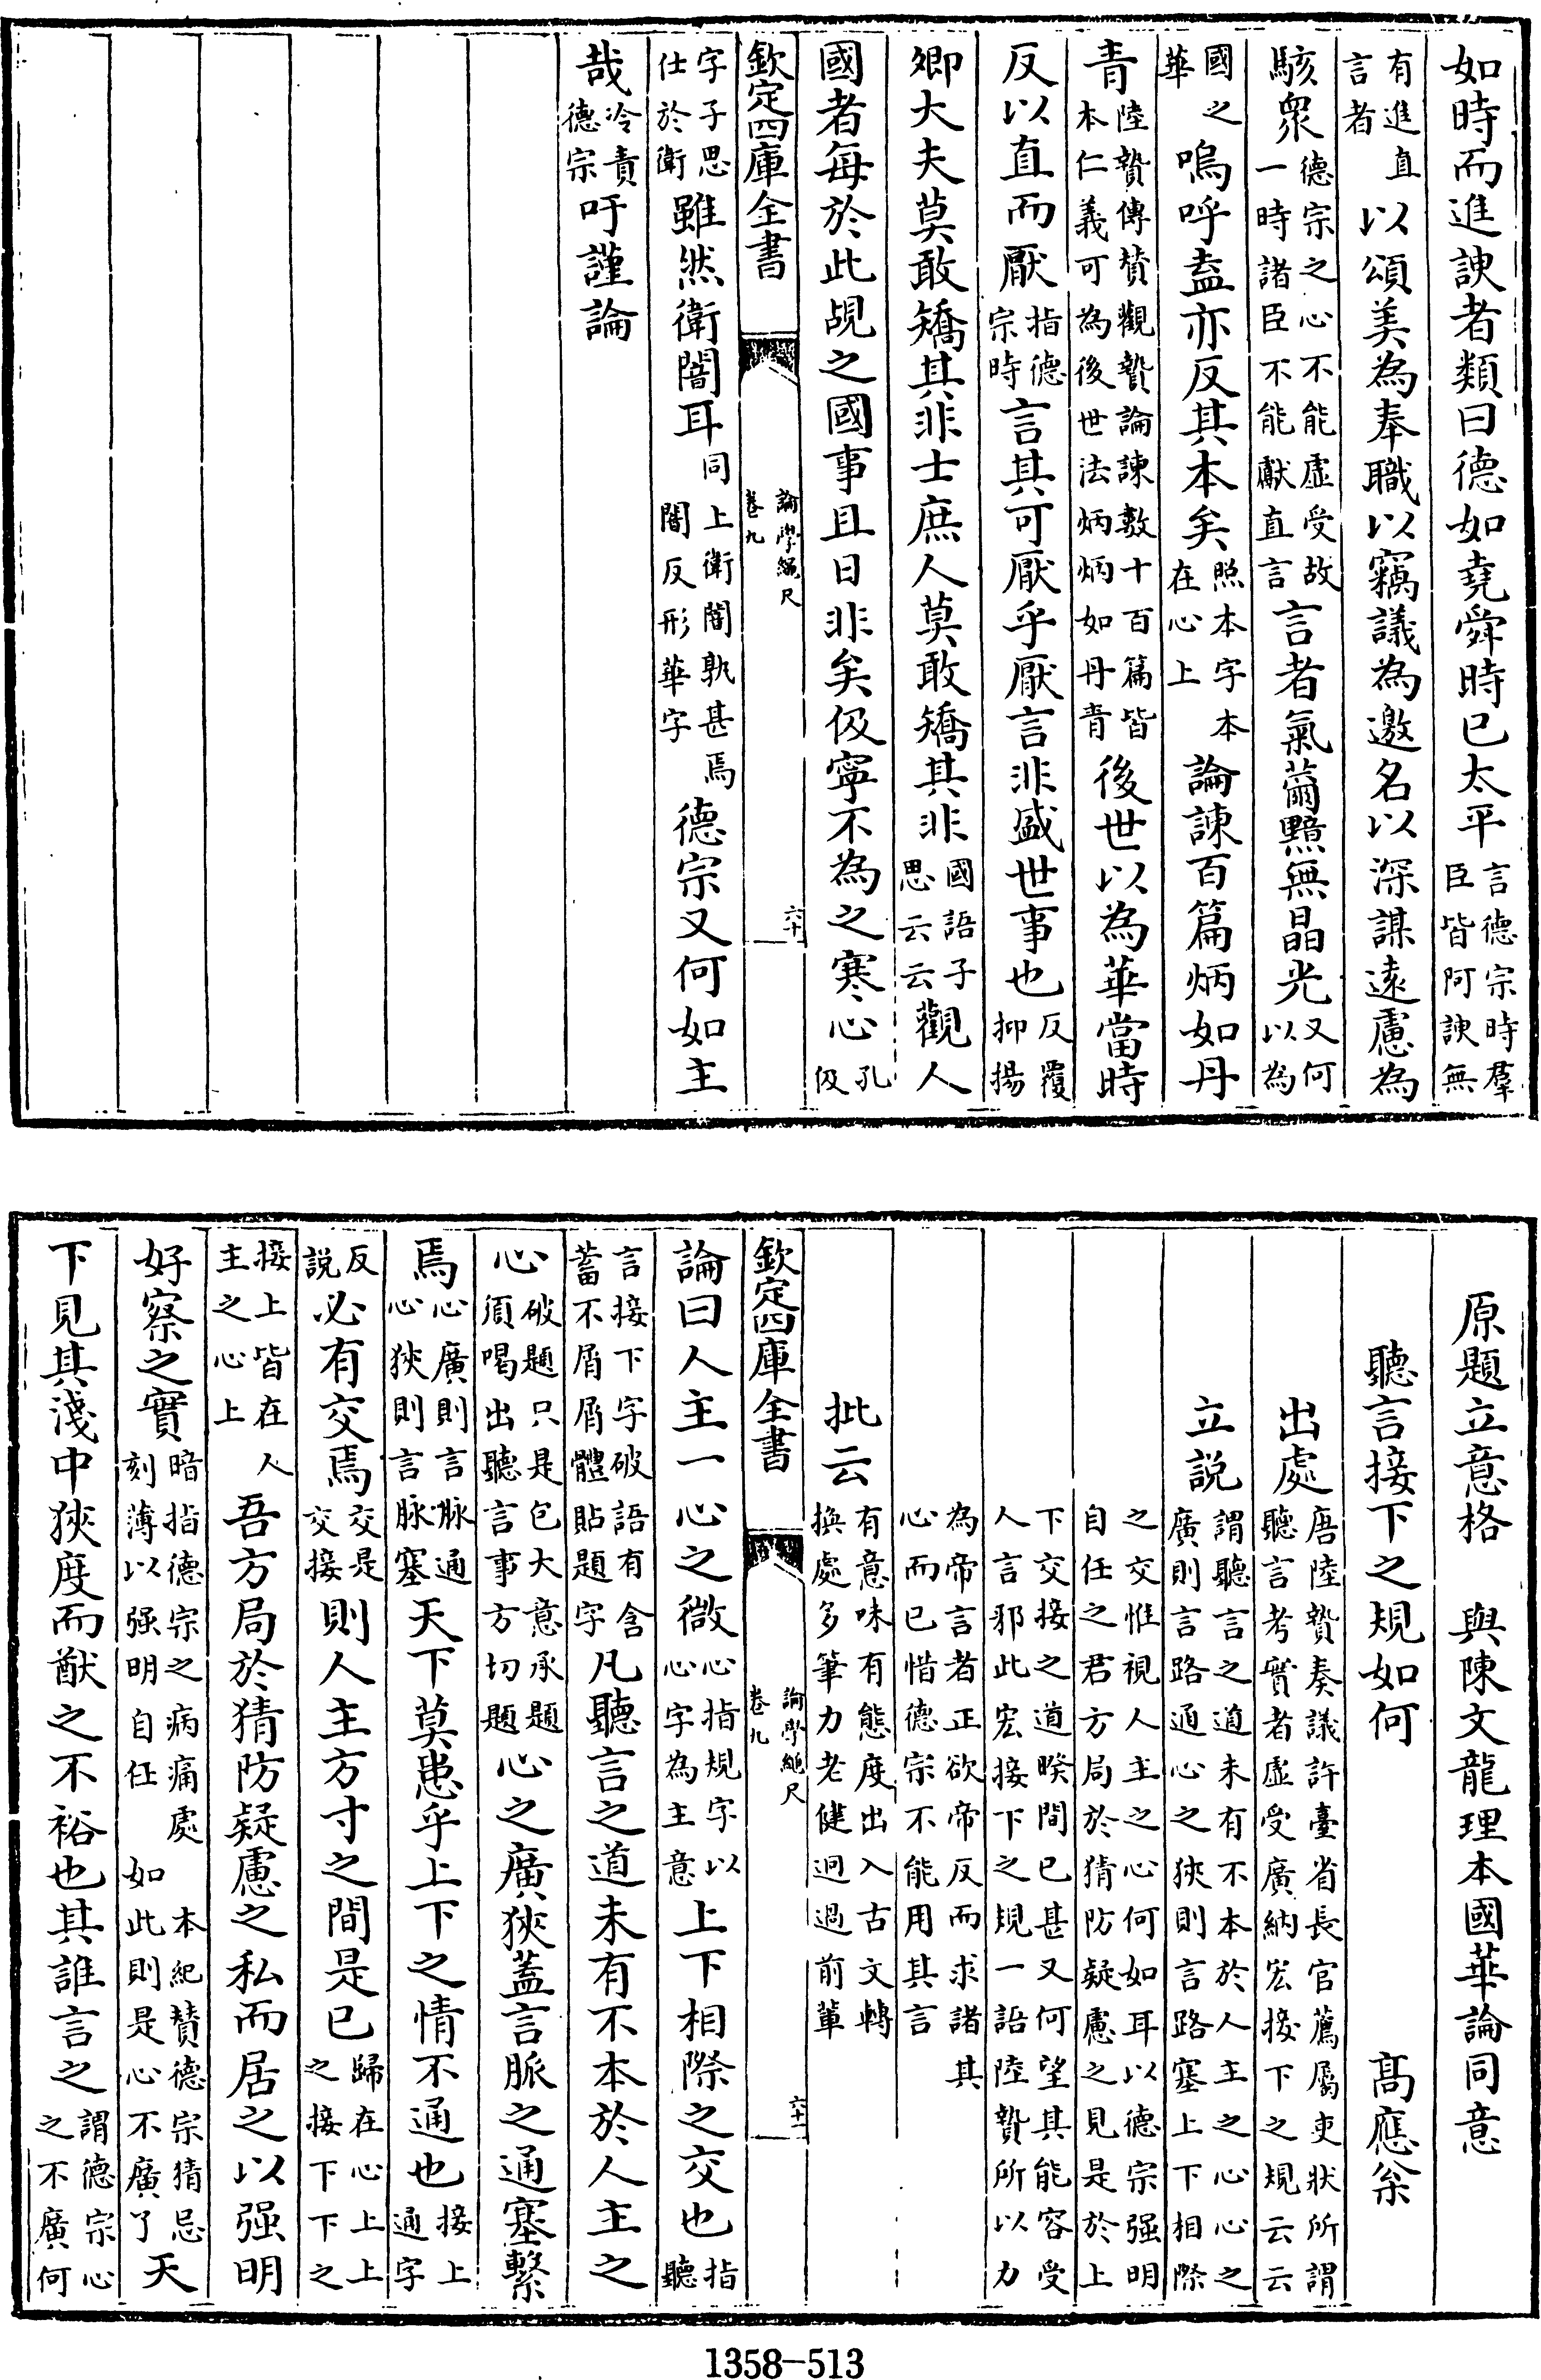 如時而進諛者類曰德如堯舜時已太平言德宗時羣臣皆阿諛無
有進直言者以頌美為奉職以竊議為邀名以深謀遠慮為
駭衆德宗之心不能虛受故一時諸臣不能獻直言言者氣薾黯無晶光又何以為
國之華嗚呼盍亦反其本矣照本字本在心上論諫百篇炳如丹
青陸贄傳贊觀贄論諫數十百篇皆本仁義可為後世法炳炳如丹青後世以為華當時
反以直而厭指德宗時言其可厭乎厭言非盛世事也反覆抑揚
卿大夫莫敢矯其非士庶人莫敢矯其非國語子思云云觀人
國者每於此覘之國事且日非矣伋寧不為之寒心孔伋
字子思仕於衛雖然衛闇耳同上衛闇孰甚焉闇反形華字德宗又何如主
哉冷責德宗吁謹論
欽定四庫全書
論學繩尺
卷九
六十
原題立意格 與陳文龍理本國華論同意
聽言接下之規如何 高應㒶
出處唐陸贄奏議許臺省長官薦屬吏狀所謂聽言考實者虛受廣納宏接下之規云云
立説謂聽言之道未有不本於人主之心心之廣則言路通心之狹則言路塞上下相際
之交惟視人主之心何如耳以德宗强明自任之君方局於猜防疑慮之見是於上
下交接之道暌間已甚又何望其能容受人言邪此宏接下之規一語陸贄所以力
為帝言者正欲帝反而求諸其心而已惜德宗不能用其言
批云有意味有態度出入古文轉換處多筆力老健迥過前輩
欽定四庫全書
論學繩尺
卷九
六十一
論曰人主一心之微心指規字以心字為主意上下相際之交也指聽
言接下字破語有含蓄不屑屑體貼題字凡聽言之道未有不本於人主之
心破題只是包大意承題須喝出聽言事方切題心之廣狹蓋言脈之通塞繫
焉心廣則言脉通心狹則言脉塞天下莫患乎上下之情不通也接上通字
反說必有交焉交是交接則人主方寸之間是已歸在心上上之接下下之
接上皆在人主之心上吾方局於猜防疑慮之私而居之以强明
好察之實暗指德宗之病痛處刻薄以强明自任如此則是心不廣了本紀贊德宗猜忌天
下見其淺中狹度而猷之不裕也其誰言之謂德宗心之不廣何
1358-513